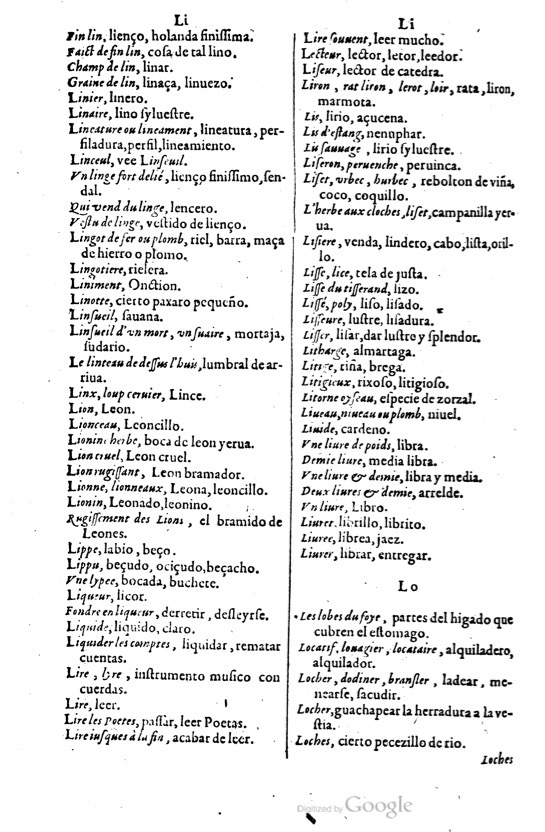 Li
Fin lin, lienço, holanda finissima.
Faict de fin lin, cosa de tal lino.
Champ de lin, linar.
Graine de lin, linaça, linuezo.
Linier, linero.
Linaire, lino syluestre.
Lineature ou lineament, lineatura, per-
filadura, perfil, lineamiento.
Linceul, vee Linseuil.
Vn linge fort delié, lienço finissimo, sen-
dal.
Qui vend du linge, lencero.
Vestu de linge, vestido de lienço.
Lingot de fer ou plomb, riel, barra, maça
de hierro o plomo.
Lingotiere, rielera.
Liniment, Onction.
Linotte, cierto paxaro pequeño.
Linsueil, sauana.
Linsueil d'vn mort, vn suaire, mortaja,
sudario.
Le linteau de dessus l'huis, lumbral de ar-
riua.
Linx, loup ceruier, Lince.
Lion, Leon.
Lionceau, Leoncillo.
Lionine herbe, boca de leon yerua.
Lion cruel, Leon cruel.
Lion rugissant, Leon bramador.
Lionne, lionneaux, Leona, leoncillo.
Lionin, Leonado, leonino.
Rugissement des Lions, el bramido de
Leones.
Lippe, labio, beço.
Lippu, beçudo, ociçudo, beçacho.
Vne lypee, bocada, buchete.
Liqueur, licor.
Fondre en liqueur, derretir, desleyrse.
Liquide, liquido, claro.
Liquider les comptes, liquidar, rematar
cuentas.
Lire, lyre, instrumento musico con
cuerdas.
Lire, leer.
Lire les Poetes, passar, leer Poetas.
Lire iusques à la fin, acabar de leer.
Li
Lire souuent, leer mucho.
Lecteur, lector, letor, leedor.
Liseur, lector de catedra.
Liron, rat liron, lerot, loir, rata, liron,
marmota.
Lis, lirio, açucena.
Lis d'estang, nenuphar.
Lis sauuage, lirio syluestre.
Liseron, peruenche, peruinca.
Liset, vrbec, hurbec, rebolton de viña,
coco, coquillo.
L'herbe aux cloches, liset, campanilla yer-
ua.
Lisiere, venda, lindero, cabo, lista, oril-
lo.
Lisse, lice, tela de justa.
Lisse du tisserand, lizo.
Lissé, poly, liso, lisado.
Lisseure, lustre, lisadura.
Lisser, lisar, dar lustre y splendor.
Litharge, almartaga.
Litige, riña, brega.
Litigieux, rixoso, litigioso.
Litorne oyseau, especie de zorzal.
Liueau, niueau ou plomb, niuel.
Liuide, cardeno.
Vne liure de poids, libra.
Demie liure, media libra.
Vne liure & demie, libra y media.
Deux liures & demie, arrelde.
Vn liure, Libro.
Liuret, librillo, librito.
Liuree, librea, jaez.
Liurer, librar, entregar.
Lo
Les lobes du foye, partes del higado que
cubren el estomago.
Locatif, louagier, locataire, alquiladero,
alquilador.
Locher, dodiner, bransler, ladear, me-
nearse, sacudir.
Locher, guachapear la herradura a la ve-
stia.
Loches, cierto pecezillo de rio.
Loches
Digitized by Google